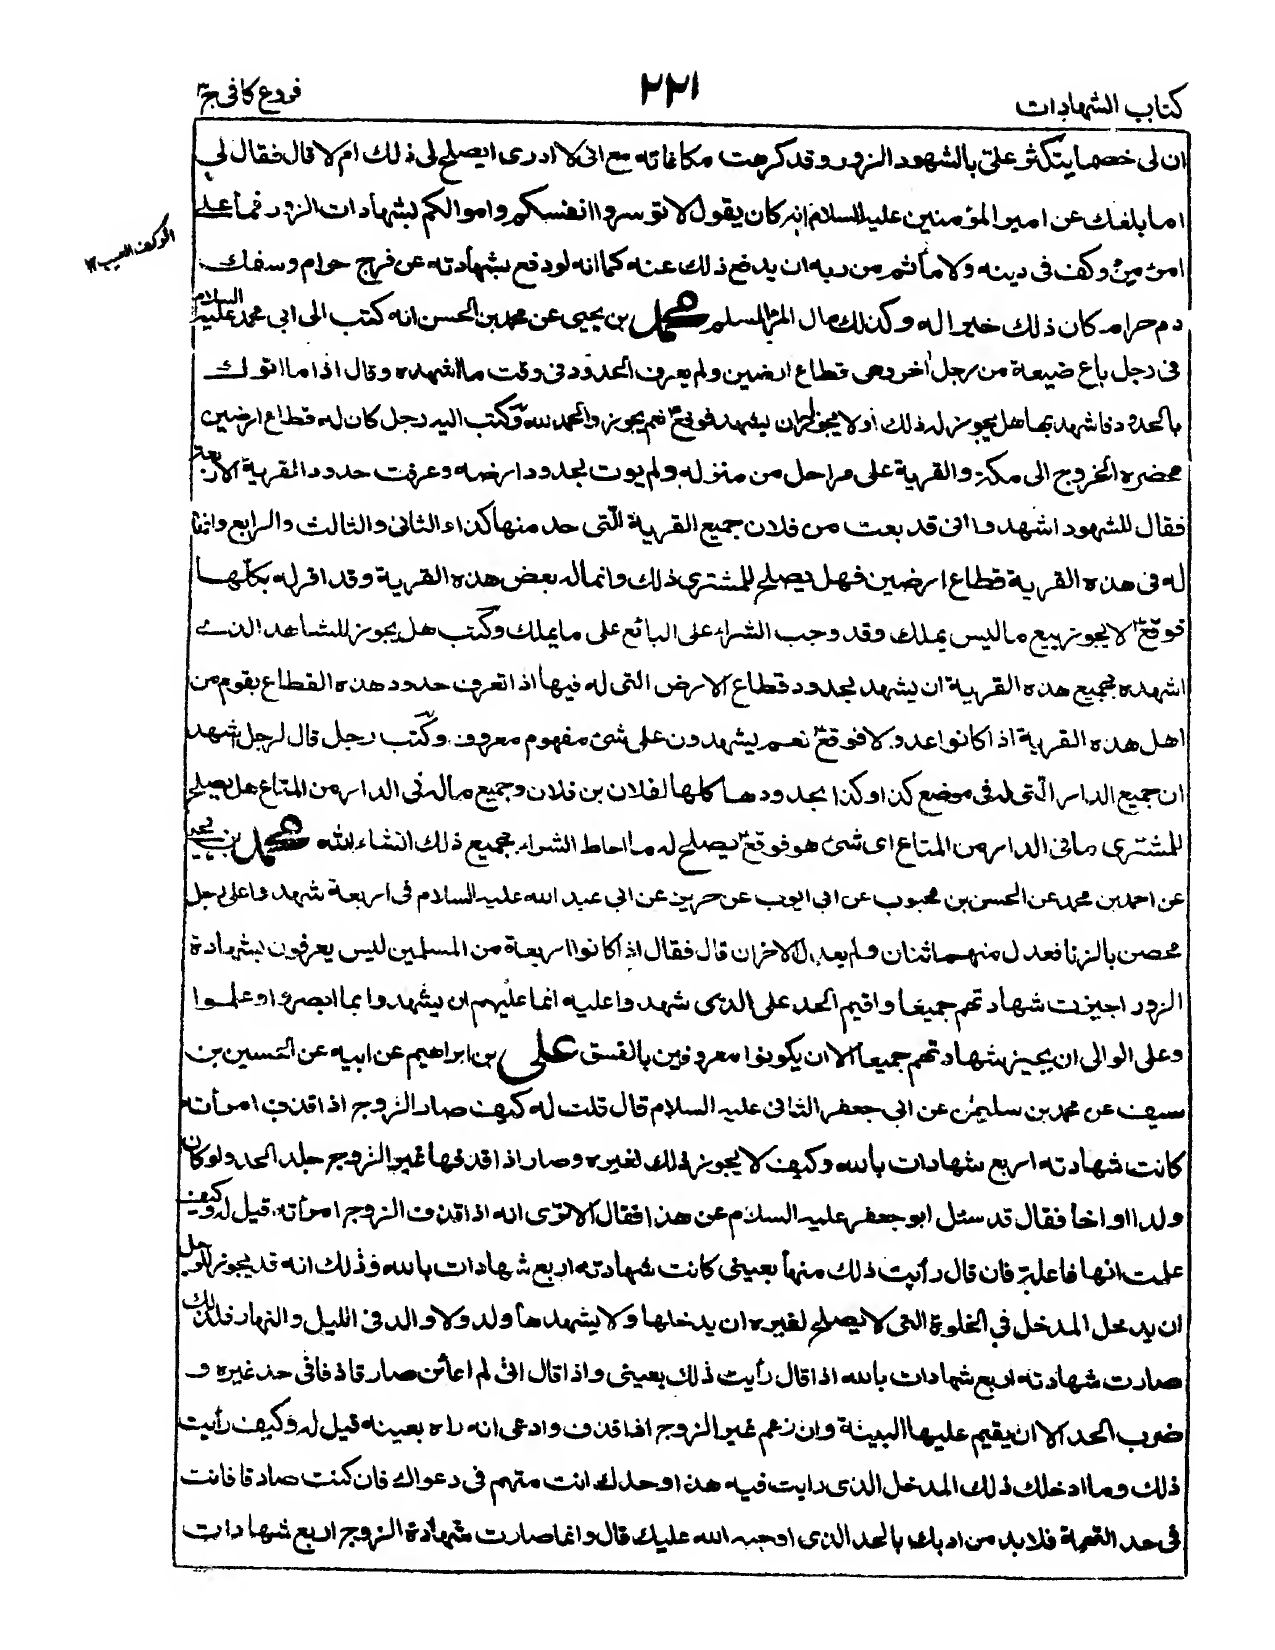 كتاب الشهادات
٢٢١
فروع كافى ج٣
ان لى خصما يتكثر علىّ بالشهود الزور وقد كرهت مكافاته مع انى لا ادرى ايصلح لى ذلك ام لا قال فقال لى
اما بلغك عن امير المؤمنين عليه السلام انه كان يقول لا توسروا انفسكم واموالكم بشهادات الزور فما على
امرئ من وكف فى دينه ولا مأثم من ربه ان يدفع ذلك عنه كما انه لو دفع بشهادته عن فرج حرام وسفك
الوكف العيب ١٢
دم حرام كان ذلك خيرا له وكذلك مال المرء المسلم محمد بن يحيى عن محمد بن الحسن انه كتب الى ابى محمد عليه السلام
فى رجل باع ضيعة من رجل آخر وهى قطاع ارضين ولم يعرف الحدود فى وقت ما اشهده وقال اذا ما اتوك
بالحدود فاشهد بها هل يجوز له ذلك او لا يجوز له ان يشهد فوقع ع نعم يجوز والحمد لله وكتب اليه رجل كان له قطاع ارضين
محضره الخروج الى مكة والقرية على مراحل من منزله ولم يوت بحدود ارضه وعرفت حدود القرية الاربعة
فقال للشهود اشهدوا انى قد بعت من فلان جميع القرية الّتى حد منها كذا والثانى والثالث والرابع وانما
له فى هذه القرية قطاع ارضين فهل يصلح للمشترى ذلك وانما له بعض هذه القرية وقد اقر له بكلّها
فوقع ع لا يجوز بيع ما ليس يملك وقد وجب الشراء على البائع على ما يملك وكتب هل يجوز للشاهد الذى
اشهده بجميع هذه القرية ان يشهد بحدود قطاع الارض التى له فيها اذا تعرف حدود هذه القطاع بقوم من
اهل هذه القرية اذا كانوا عدولا فوقع ع نعم يشهدون على شئ مفهوم معروف وكتب رجل قال لرجل اشهد
ان جميع الدار الّتى له فى موضع كذا وكذا بحدودها كلها لفلان بن فلان وجميع ماله فى الدار من المتاع هل يصلح
للمشترى ما فى الدار من المتاع اى شئ هو فوقع ع يصلح له ما احاط الشراء بجميع ذلك انشاء الله محمد بن يحيى
عن احمد بن محمد عن الحسن بن محبوب عن ابى ايوب عن حريز عن ابى عبد الله عليه السلام فى اربعة شهدوا على رجل
محصن بالزنا فعدل منهم اثنان ولم يعدل الآخران قال فقال اذا كانوا اربعة من المسلمين ليس يعرفون بشهادة
الزور اجيزت شهادتهم جميعا واقيم الحد على الذى شهدوا عليه انما عليهم ان يشهدوا بما ابصروا وعلموا
وعلى الوالى ان يجيز شهادتهم جميعا الا ان يكونوا معروفين بالفسق على بن ابراهيم عن ابيه عن الحسين بن
سيف عن محمد بن سليمن عن ابى جعفر الثانى عليه السلام قال قلت له كيف صار الزوج اذا قذف امرأته
كانت شهادته اربع شهادات بالله وكيف لا يجوز ذلك لغيره وصار اذا قذفها غير الزوج جلد الحد ولو كان
ولدا او اخا فقال قد سئل ابو جعفر عليه السلام عن هذا فقال الا ترى انه اذا قذف الزوج امرأته قيل له وكيف
علمت انها فاعلة فان قال رأيت ذلك منها بعينى كانت شهادته اربع شهادات بالله وذلك انه قد يجوز للرجل
ان يدخل المدخل فى الخلوة التى لا يصلح لغيره ان يدخلها ولا يشهدها ولد ولا والد فى الليل والنهار فلذلك
صارت شهادته اربع شهادات بالله اذا قال رأيت ذلك بعينى واذا قال انى لم اعائن صار قاذفا فى حد غيره و
ضرب الحد الا ان يقيم عليها البينة وان زعم غير الزوج اذا قذف وادعى انه راه بعينه قيل له وكيف رأيت
ذلك وما ادخلك ذلك المدخل الذى رايت فيه هذا وحدك انت متهم فى دعواك فان كنت صادقا فانت
فى حد التهمة فلا بد من ادبك بالحد الذى اوجبه الله عليك قال وانما صارت شهادة الزوج اربع شهادات